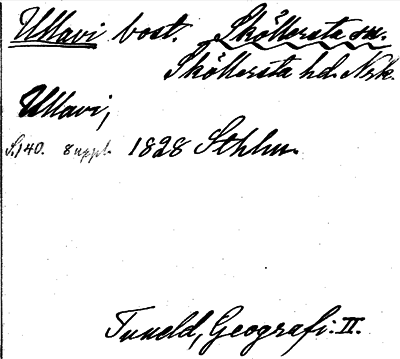 Ullavi bost. Sköllersta sn.
Sköllersta hd. Nrk.
Ullavi,
S. 140. 8 uppl. 1828 Sthlm.
Tuneld, Geografi. II.